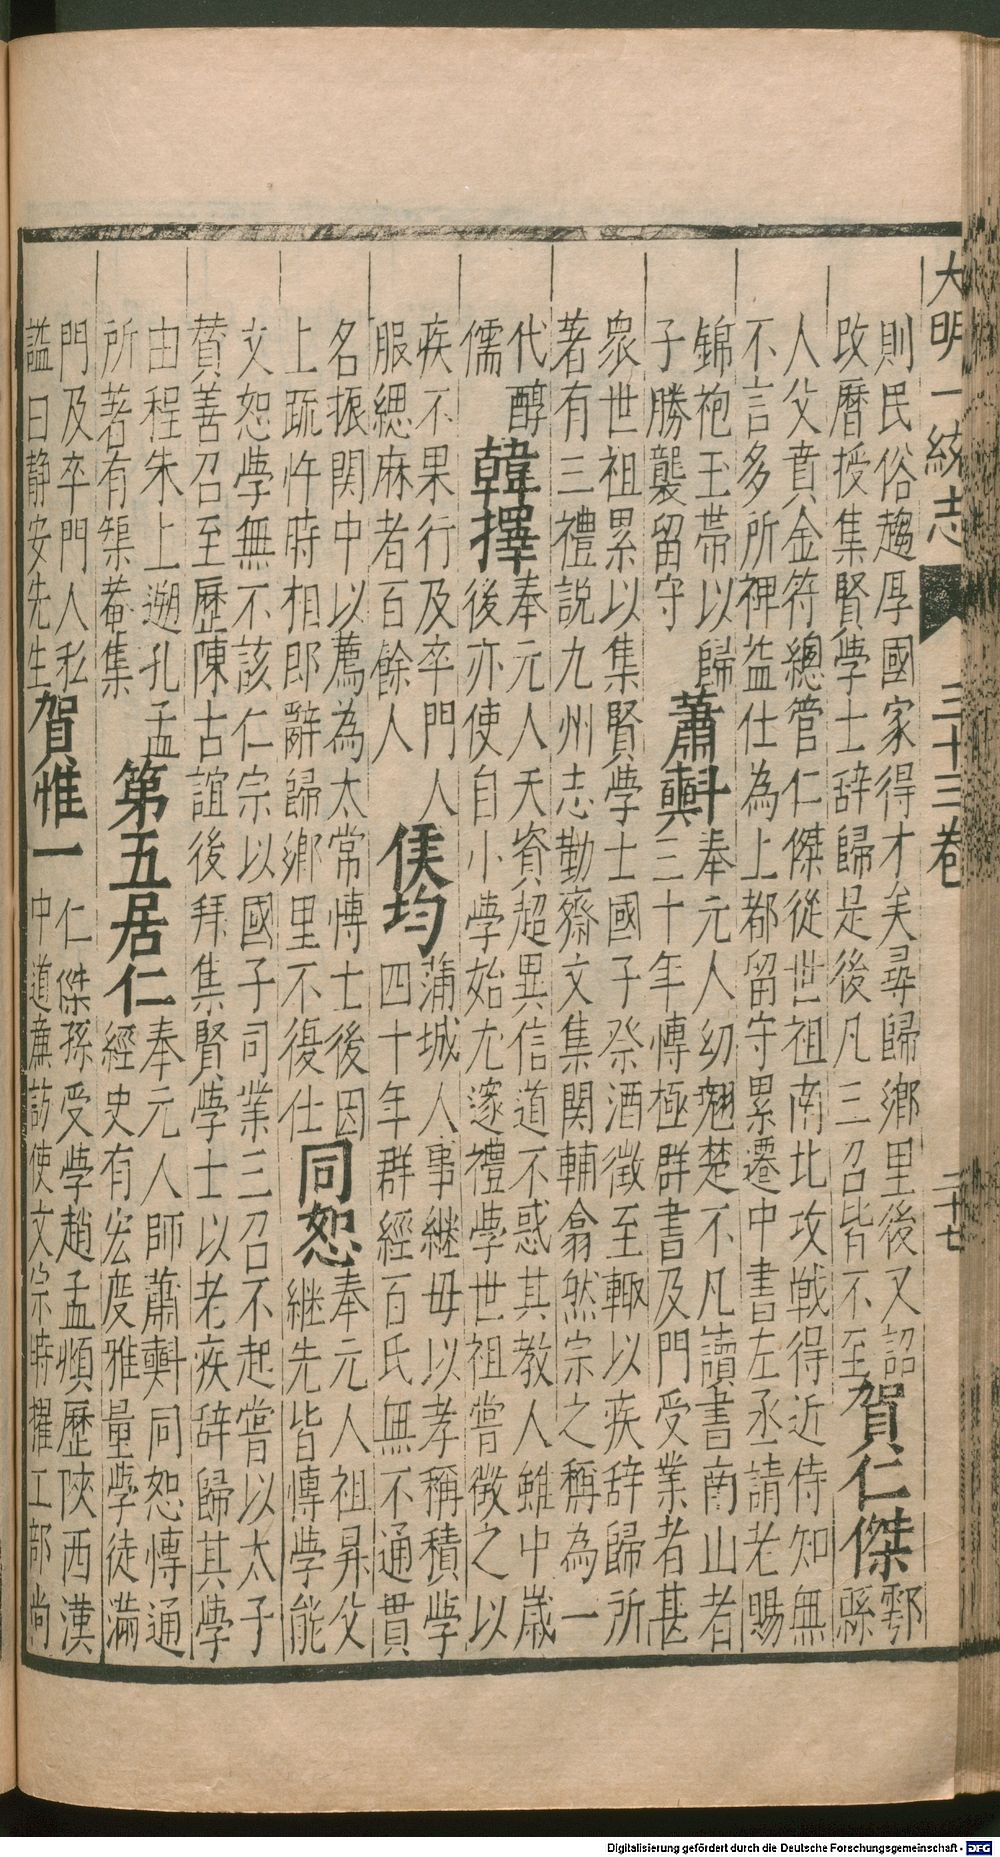 大明一統志 三十三卷 二十七
則民俗趨厚國家得才矣尋歸鄉里後又詔
改曆授集賢學士辞歸是後凡三召皆不至
賀仁傑
鄠
縣
人父賁金符總管仁傑從世祖南北攻戰得近侍知無
不言多所裨益仕為上都留守累遷中書左丞請老賜
錦袍玉帶以歸
子勝襲留守
蕭𣂏
奉元人幼翹楚不凡讀書南山者
三十年博極群書及門受業者甚
眾世祖累以集賢學士國子祭酒徵至輒以疾辞歸所
著有三禮説九州志勤齋文集関輔翕然宗之稱為一
代醇
儒
韓擇
奉元人天資超異信道不惑其教人雖中歲
後亦使自小學始尤邃禮學世祖嘗徵之以
疾不果行及卒門人
服緦麻者百餘人
侯均
蒲城人事継母以孝稱積學
四十年群經百氏無不通貫
名振関中以薦為太常博士後因
上疏忤時相即辭歸鄉里不復仕
同恕
奉元人祖昇父
継先皆博學能
文恕學無不該仁宗以國子司業三召不起嘗以太子
賛善召至歷陳古誼後拜集賢學士以老疾辞歸其學
由程朱上遡孔孟
所著有榘菴集
第五居仁
奉元人師蕭𣂏同恕博通
經史有宏度雅量學徒滿
門及卒門人私
謚曰静安先生
賀惟一
仁傑孫受學趙孟頫歷陜西漢
中道廉訪使文宗時擢工部尚
Digitalisierung gefördert durch die Deutsche Forschungsgemeinschaft - DFG